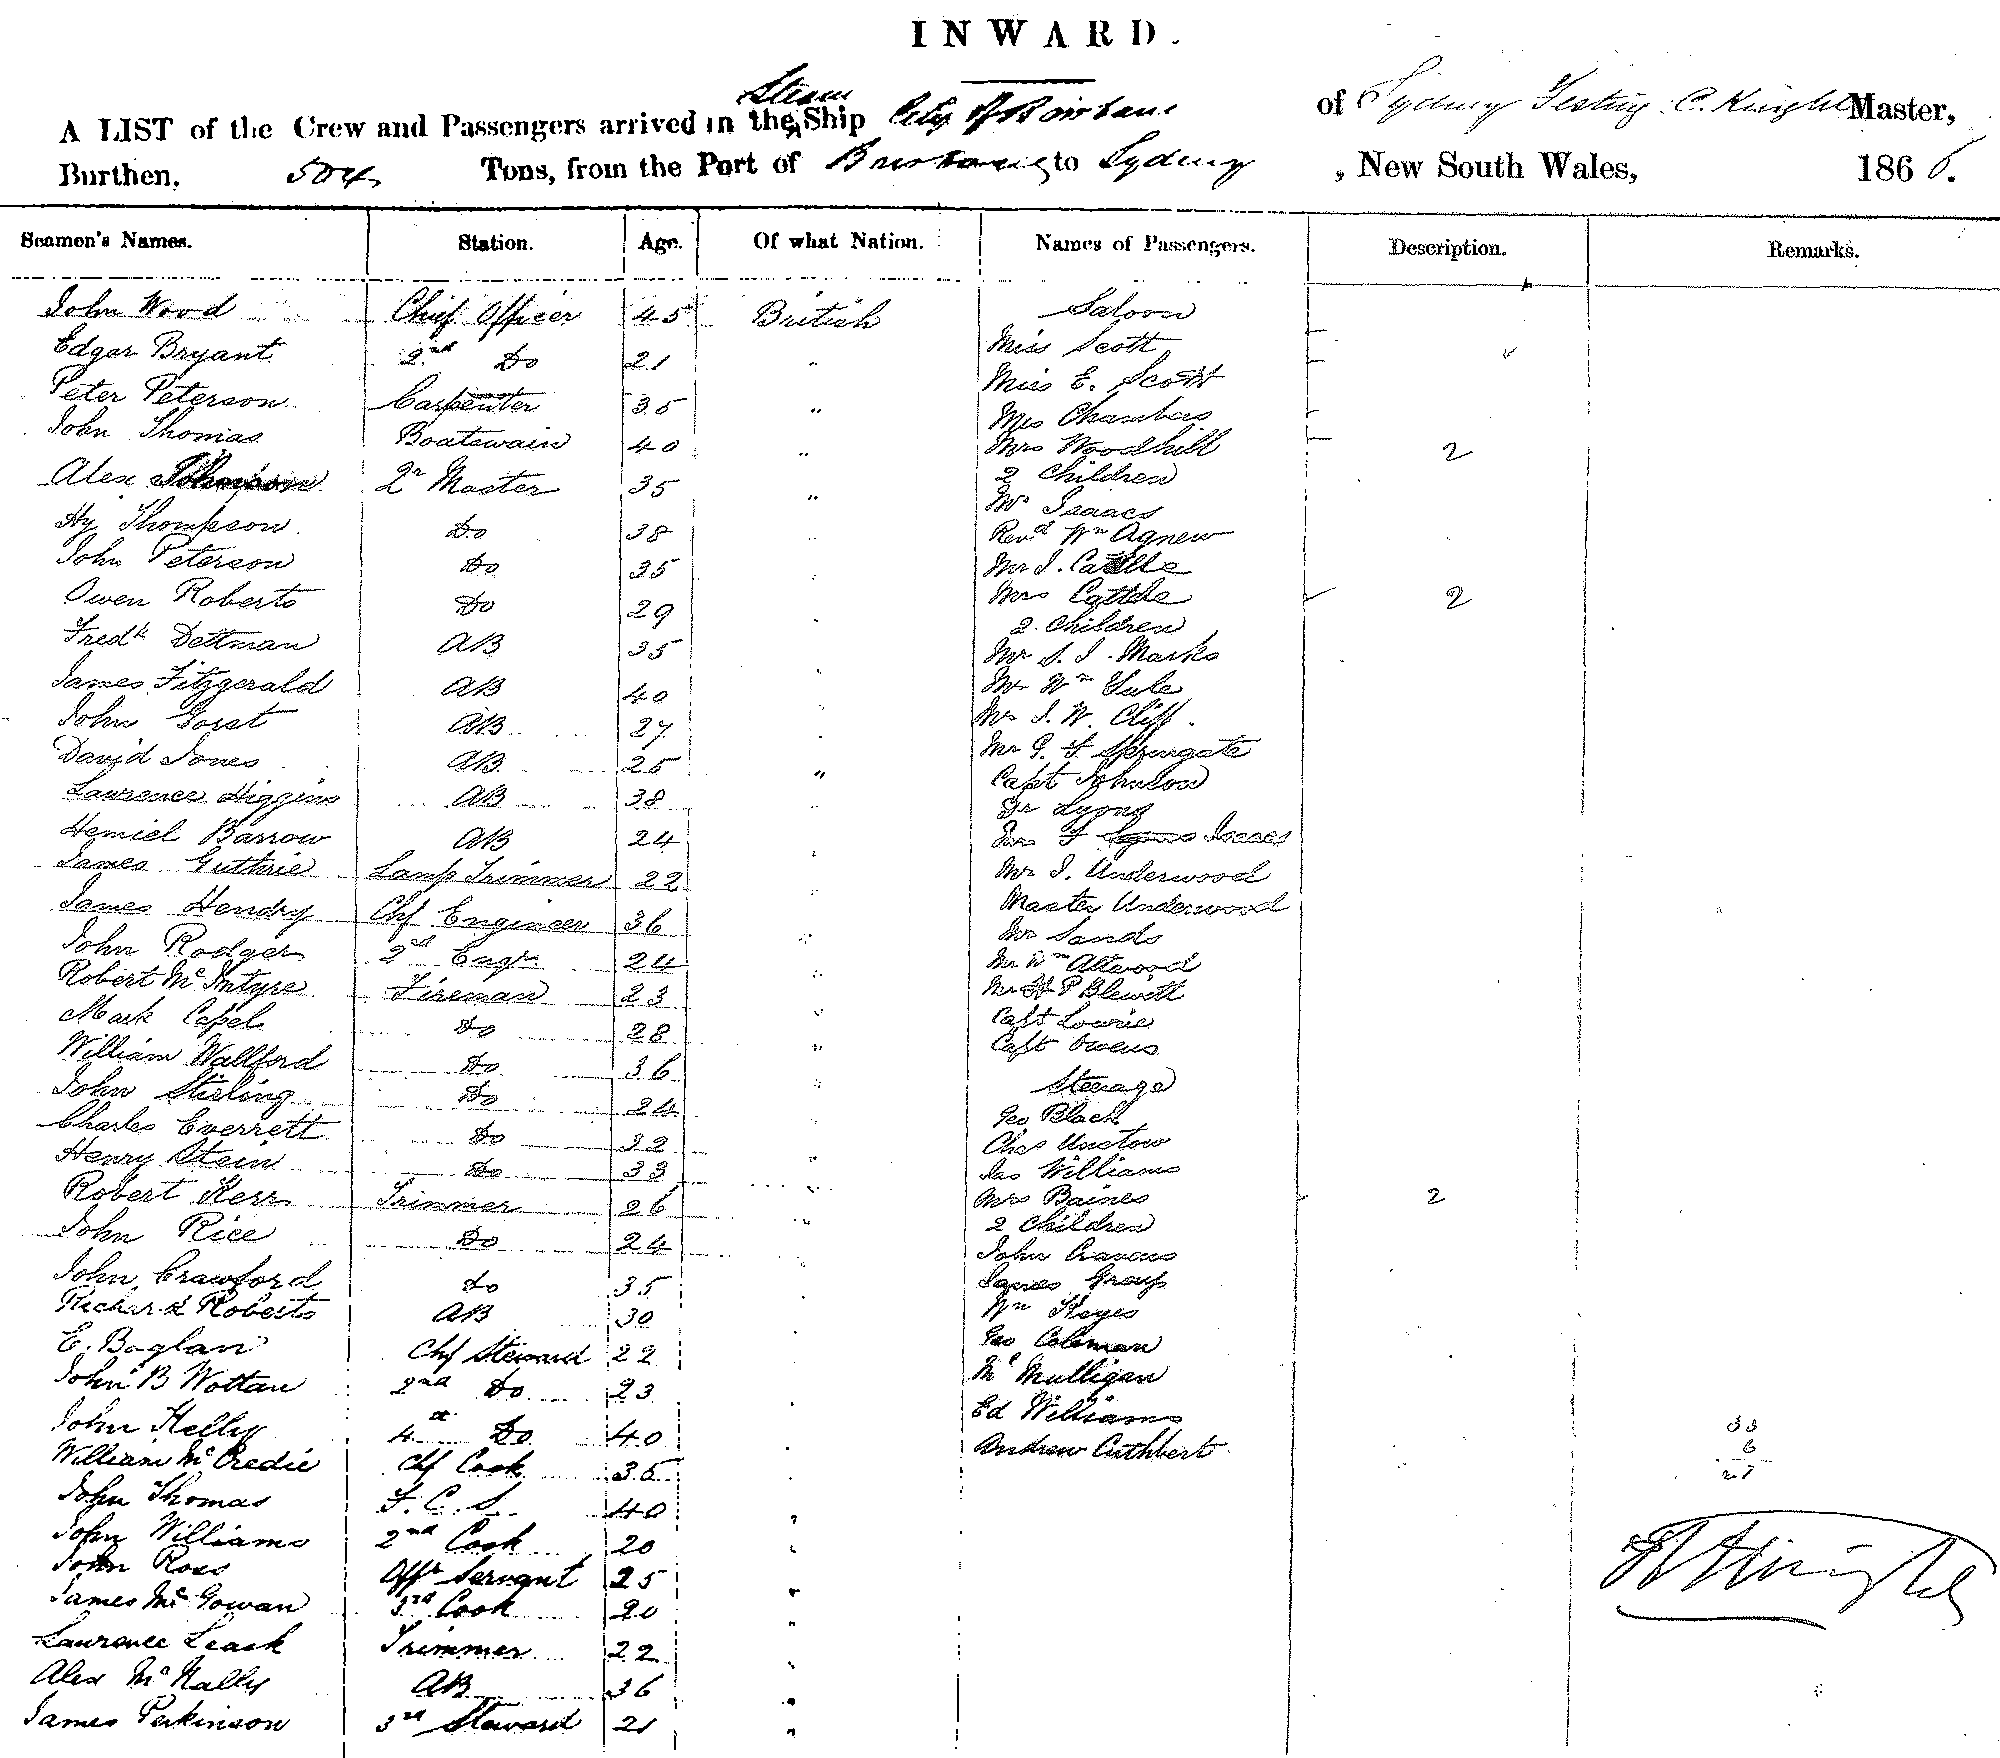 INWARD.
A LIST of the Crew and Passengers arrived in the Steam Ship City of Brisbane of Sydney C. Knight Master,
Burthen, 504 Tons, from the Port of Brisbane to Sydney, New South Wales, 1866.
Seamen's Names. Station. Age. Of what Nation. Names of Passengers. Description. Remarks.
John Wood Chief Officer 45 British Saloon
Edgar Bryant 2nd Do 21 " Miss Scott
Peter Peterson Carpenter 35 " Miss E. Scott
Mrs Chambers
John Thomas Boatswain 40 " Mrs Woodhill 2
2 Children
Alex 2r Master 35 " Mr Isaacs
Hy Thompson Do 38 Revd Wm Agnew
John Peterson Do 35 Mr J. Cattle
Owen Roberts Do 29 Mrs Cattle 2
2 Children
Fredk Dettman AB 35 Mr S. J. Marks
James Fitzgerald AB 40 Mr Wm Yule
John Gorst AB 27 Mr J. W. Cliff.
David Jones AB 25 " Mr G. F Springate
Capt Johnson
Lawrence Higgins AB 38 Dr Lyons
Hemiel Barrow AB 24 Mr F Isaacs
James Guthrie Lamp Trimmer 22 Mr J. Underwood
James Hendry Chf Engineer 36 Master Underwood
John Rodger 2nd Engr 24 " Mr Sands
Mr Wm Attwood
Robert McIntyre Fireman 23 " Mr P Blewitt
Mark Capel Do 28 " Capt Lowrie
William Wallford Do 36 " Capt Owens
John Stirling Do 24 " Steerage
Charles Everrett Do 32 Geo Black
Chas Unstow
Henry Stein Do 33 " Jas Williams
Robert Kerr Trimmer 26 " Mrs Baines 2
2 Children
John Rice Do 24 " John Cravens
John Crawford do 35 James Grays
Richard Roberts AB 30 Wm Keyes
E. Baglan Chf Steward 22 Geo Coleman
John B Wottan 2nd Do 23 Mc Mulligan
John Kelly 4 Do 40 Ed Williams
William McCredie Chf Cook 35 Andrew Cuthbert
33
6
27
John Thomas F. C. S. 40
John Williams 2nd Cook 20 "
John Ross Offr Servant 25 "
James McGowan 3rd Cook 20 "
Lawrence Leask Trimmer 22 "
Alex McNally AB 36 "
James Perkinson 3rd Steward 21 "
Knight